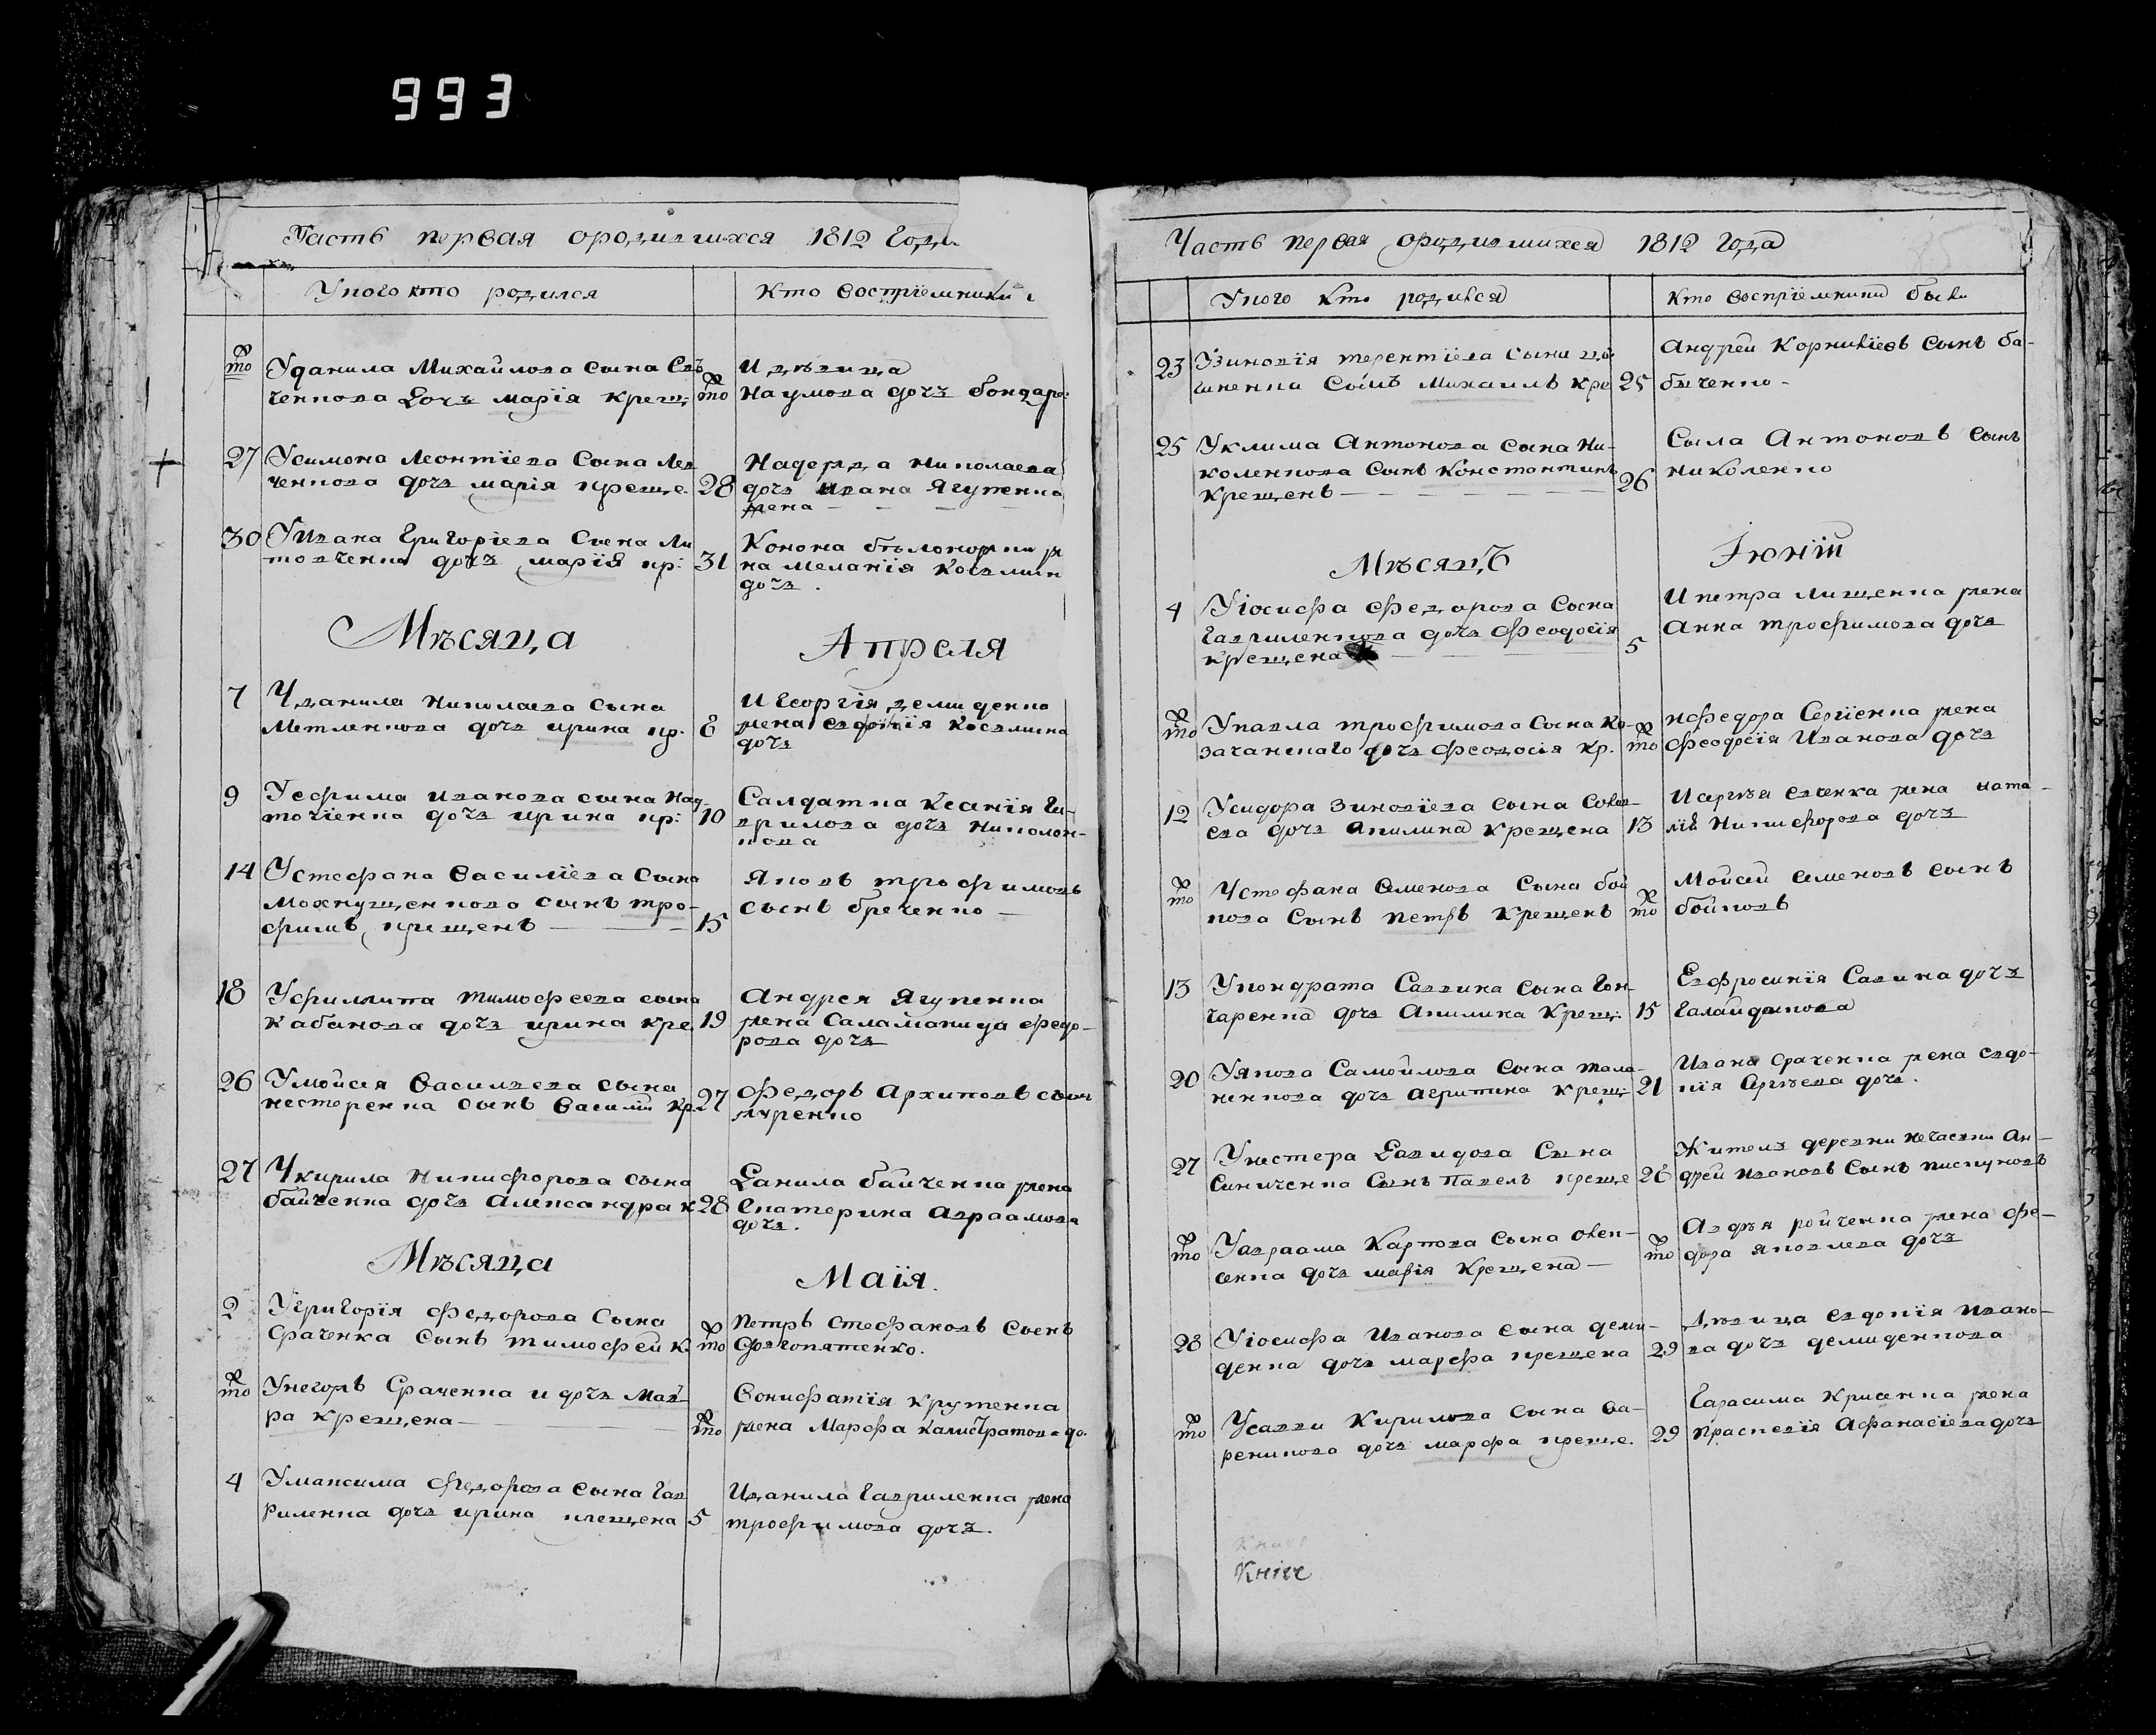 993
Часть первая ородившихся 1812 Года
Укого кто родился
Кто восприемники
то
Уданила Михайлова сына Сав
ченкова Дочъ марія крещ:
то
И дѣвица
Наумова дочъ бондаро:
27
Усимона Леонтіева Сына Лев
ченкова дочъ марія креще.
28
Надежда Николаева
дочъ Ивана Ягупенка
жена
30
Уивана Григоріева Сына Ли
товченка дочъ марія кр:
31
Конона бѣлоконя ж
на Меланія Косьмин
дочъ.
Мѣсяца Апреля
7
Уданила Николаева сына
Метленкова дочъ ирина кр.
8
И Георгія демиденко
жена евдокія Косьмина
дочъ
9
Уефима иванова сына Над-
точіенка дочъ ирина кр:
10
Салдатка Ксенія Га-
врилова дочъ Николен-
кова
14
Устефана василіева сына
Мохнущенкова сынъ тро-
фимъ, крещенъ
15
Яковъ трофимовъ
сынъ бреченко
18
Уфилиппа тимофеева сына
кабанова дочъ ирина кре.
19
Андрея Ягупенка
жена Саламанида федо-
рова дочъ
26
Умойсея Васильева сына
нестеренка сынъ Василій кр.
27
Федоръ Архиповъ сынъ
муренко
27
Укирила Никифорова сына
байченка дочъ Александра к
28
Данила байченка жена
Екатерина Авраамова
дочъ.
Мѣсяца Маія.
2
Угригорія федорова Сына
Сраченка сынъ тимофей к.
то
Петръ Стефановъ сынъ
Долгопятенко.
то
Унегожъ Сраченка и дочъ Мав-
ра крещена
то
Вонифатія крутенка
жена Марфа Калистратова до.
4
Умаксима федорова сына Гав
риленка дочъ ирина крещена
5
Иданила Гавриленка жена
трофимова дочъ.
Часть первая ородившихся 1812 Года
Укого кто родився
Кто восприемники были
23
Узиновія терентіева сына
шненка Сынъ Михаилъ кре
25
Андрей Корниліевъ Сынъ ба-
быченко
25
Уклима Антонова сына Ни-
коленкова Сынъ Константинъ
крещенъ
26
Сыла Антоновъ сынъ
николенко
Мѣсяцъ Іюній
4
Уіосифа федорова Сына
Гавриленкова дочъ Феодосія
крещена
5
И петра лищенка жена
Анна трофимова дочъ
то
Упавла трофимова Сына Ко-
зачанскаго дочъ феодосія кр.
то
ифедора Сергіенка жена
феодосія Иванова дочъ
12
Усидора зиновіева сына Совле-
ева дочъ Акилина крещена
13
Исергѣя евченка жена ната-
лія Никифорова дочъ
то
Устефана Семенова Сына бой
кова Сынъ петръ Крещенъ
то
Мойсей семеновъ сынъ
бойковъ
13
Укондрата Саввина сына Гон-
чаренка дочъ Акилина Крещ:
15
Евфросинія Савина дочъ
Галайдикова
20
Уякова Самойлова Сына тала-
ненкова дочъ агрипина крещ:
21
Ивана Сраченка жена евдо-
кія Сергѣева дочъ.
27
Унестера Давидова Сына
Синиченка Сынъ Павелъ креще
28
Житель деревни нечаевки Ан-
дрей ивановъ Сынъ пискуновъ
то
Уавраама Карпова сына овси-
енка дочъ марія Крещена
то
Авдѣя ройченка жена фе-
дора яковлева дочъ
28
Уіосифа Иванова сына деми-
денка дочъ марфа крещена
29
Дѣвица евдокія ивано-
ва дочъ демиденкова
то
Усаввы Кирилова сына ва-
реникова дочъ марфа креще.
29
Гарасима крисенка жена
праскевія Афанасіева дочъ